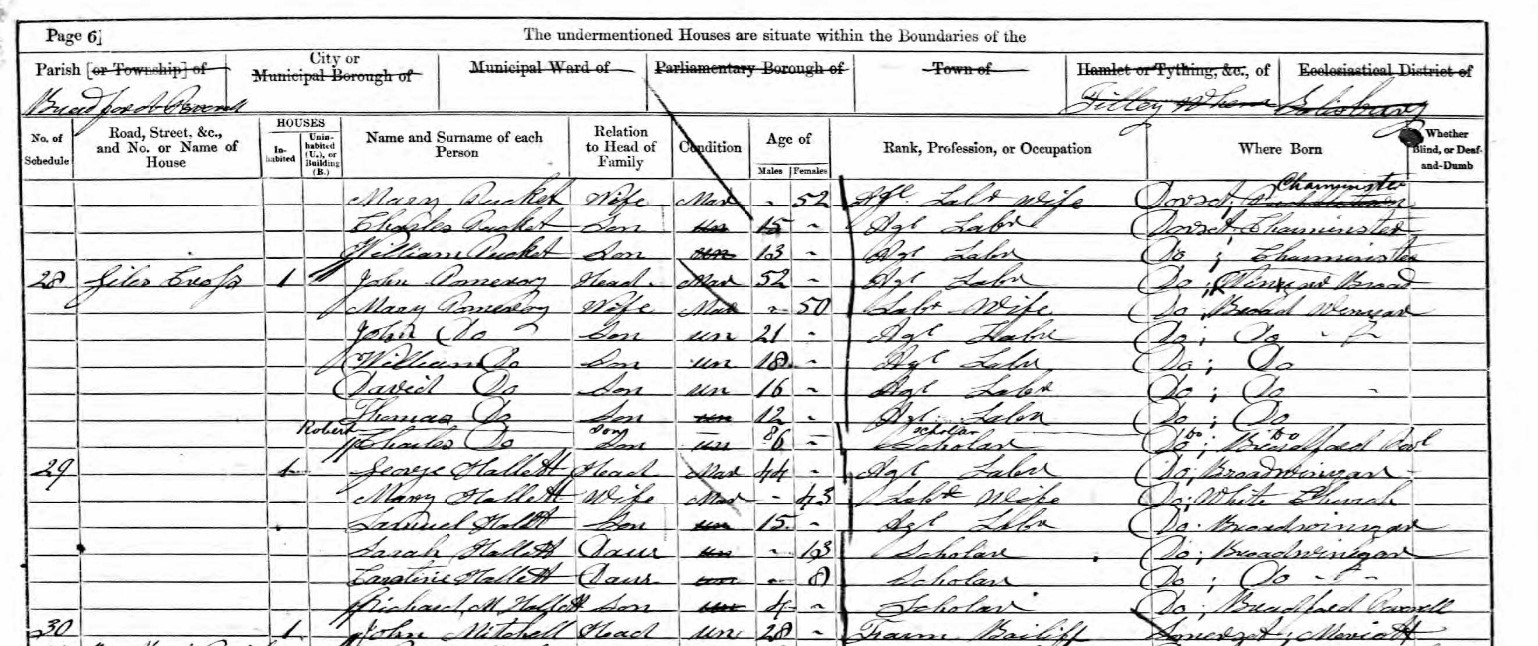 Page 6] The undermentioned Houses are situate within the Boundaries of the
Parish [or Township] of City or Municipal Borough of Municipal Ward of Parliamentary Borough of Town of Hamlet or Tything, &c., of Ecclesiastical District of
Bradford Peverell Salisbury
No. of Schedule Road, Street, &c., and No. or Name of House HOUSES Inhabited Uninhabited (U.), or Building (B.) Name and Surname of each Person Relation to Head of Family Condition Age of Males Females Rank, Profession, or Occupation Where Born Whether Blind, or Deaf-and-Dumb
Mary Wife Mar - 52 Agl. Labr Wife Dorset, Charminster
Charles Son un 15 - Agl Labr Dorset Charminster
William Son un 13 - Agl Labr Do ; Charminster
28 Giles Cross 1 John Pomeroy Head Mar 52 - Agl Labr Do ;
Mary Pomeroy Wife Mar - 50 Labr Wife Do ; Broad Winsor
John Do Son un 21 - Agl Labr Do ; Do
William Do Son un 18 - Agl Labr Do ; Do
David Do Son un 16 - Agl Labr Do ; Do
Thomas Do Son un 12 - Agl Labr Do ; Do
Robert Son 8 Scholar Do Do
Charles Do Son un 6 - Scholar Do ; Bradford Pevl
29 1 George Hallett Head Mar 44 - Agl Labr Do ; Broadwinsor
Mary Hallett Wife Mar - 43 Labr Wife Do ; White Church
Samuel Hallett Son un 15 - Agl Labr Do ; Broadwinsor
Sarah Hallett Daur un - 13 Scholar Do ; Broadwinsor
Caroline Hallett Daur un - 8 Scholar Do ; Do
Richard M Hallett Son un 4 - Scholar Do ; Bradford Peverell
30 1 John Mitchell Head un 28 - Farm Bailiff Somerset ; Meriott